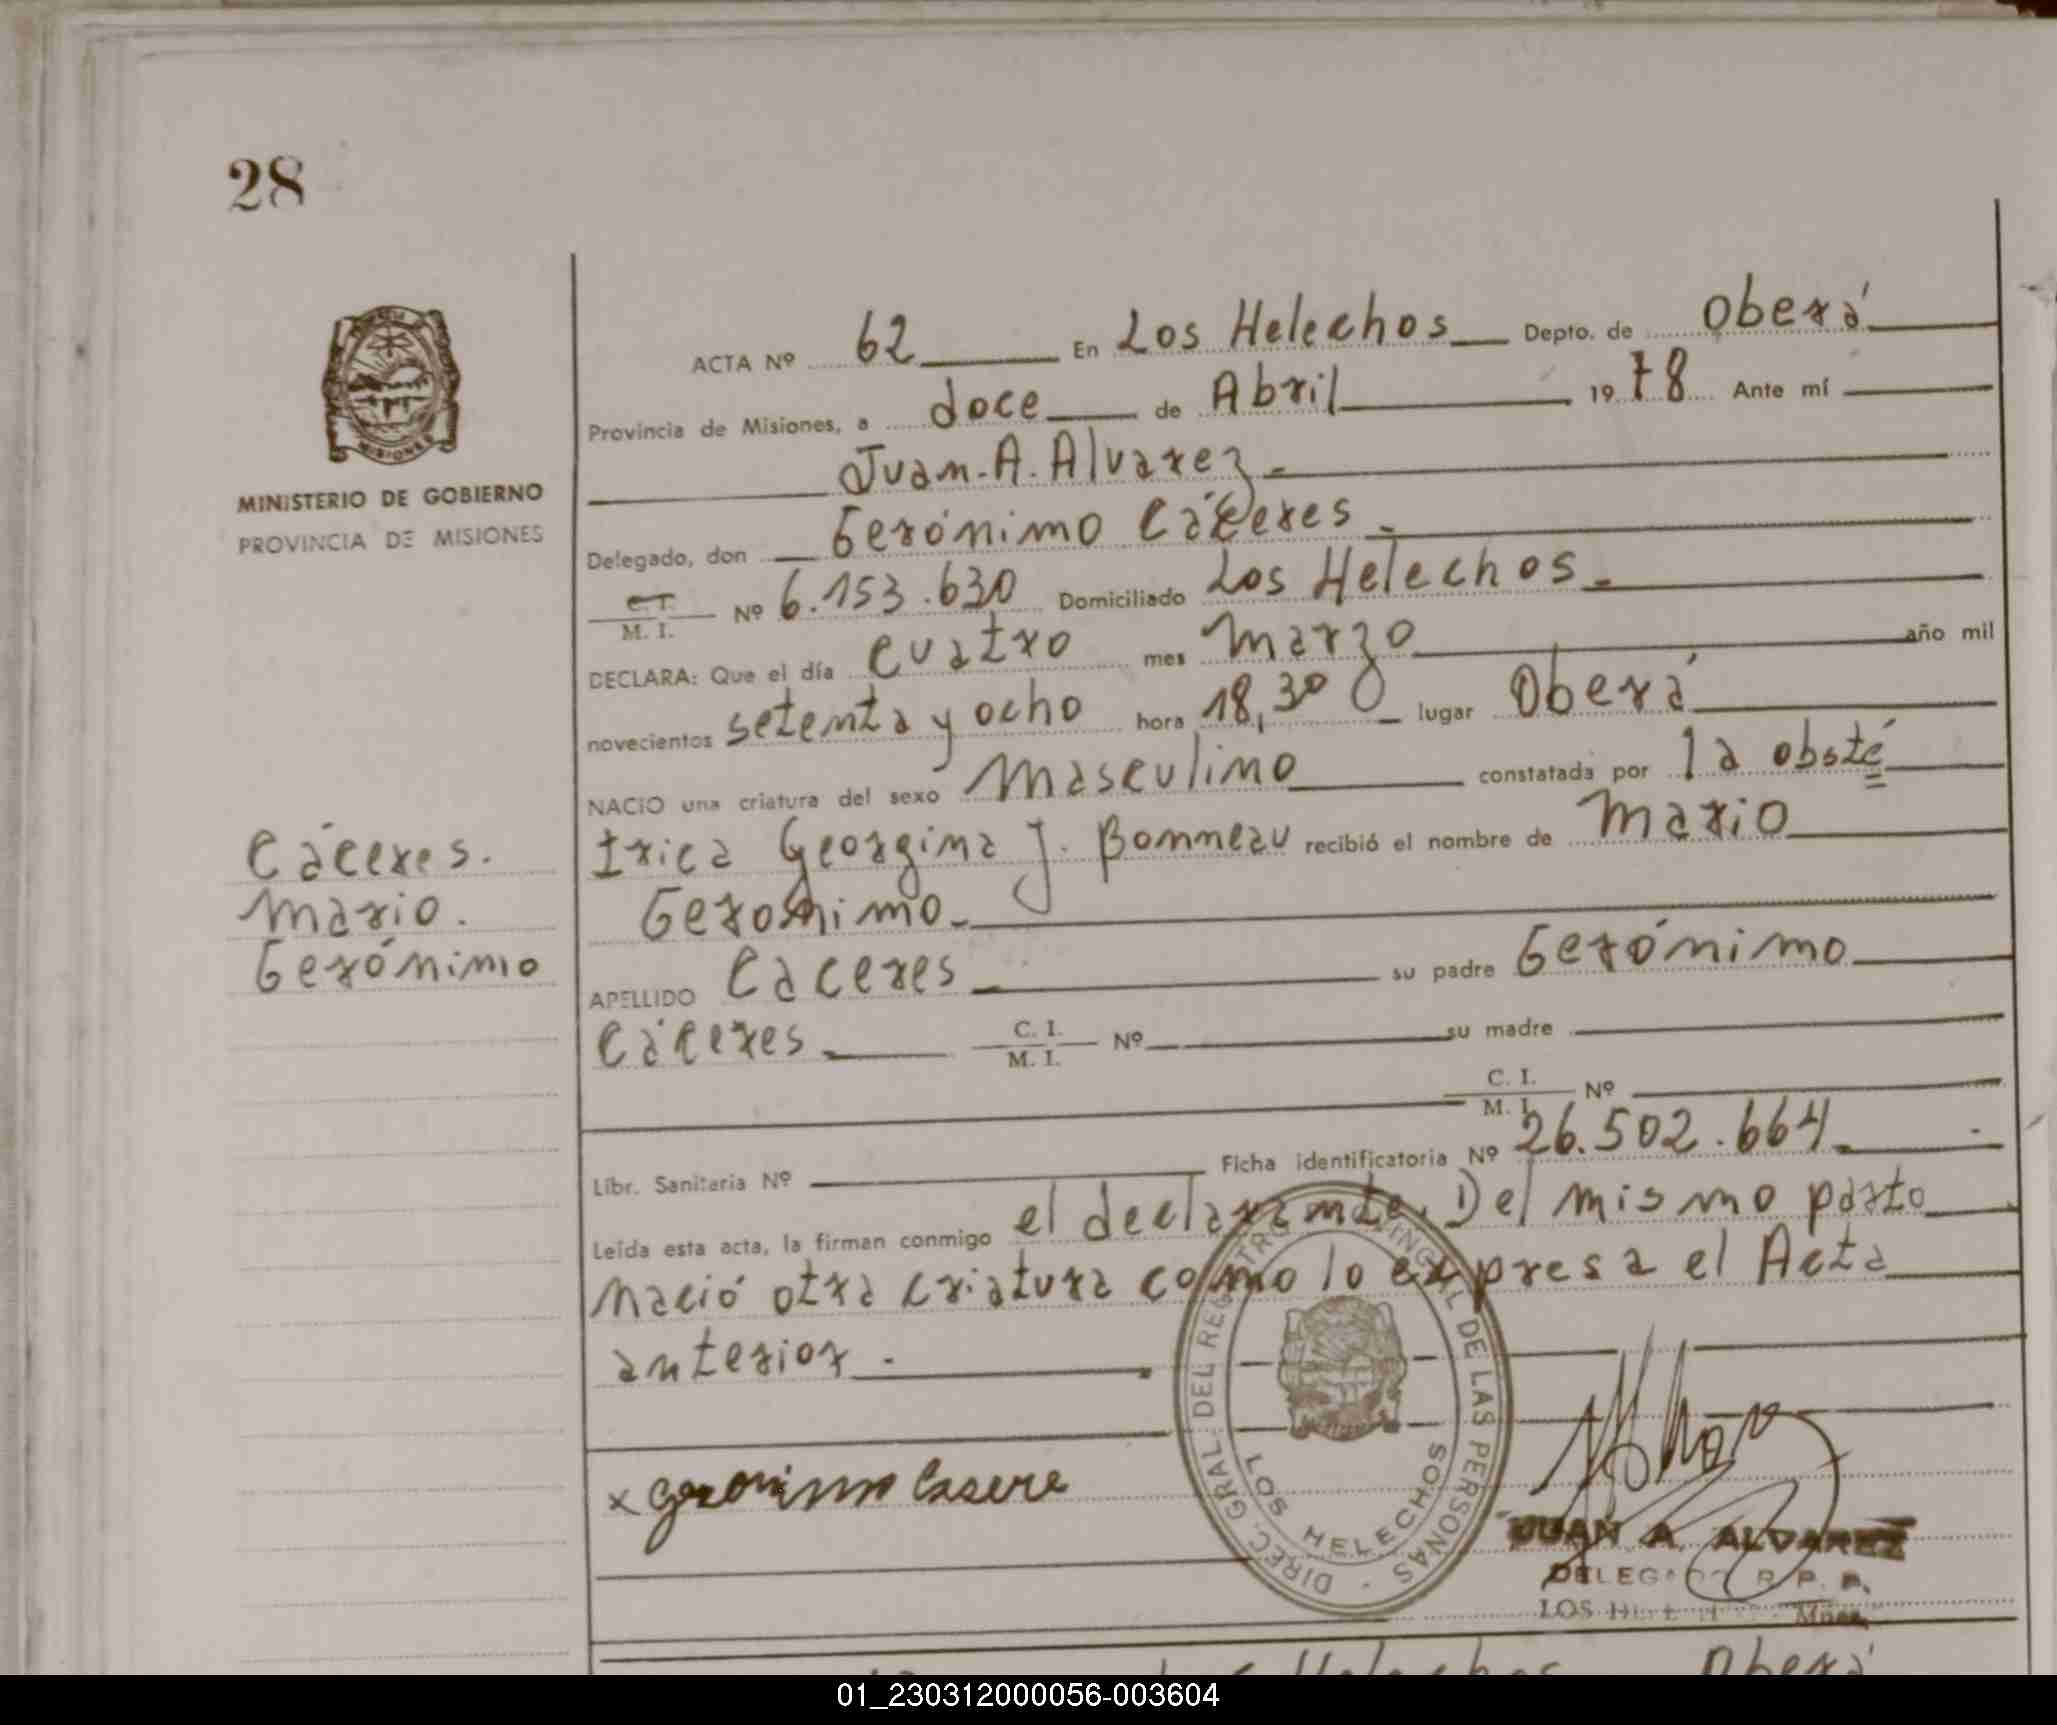 28
MISIONES
MINISTERIO DE GOBIERNO
PROVINCIA DE MISIONES
Cáceres.
Mario.
Gerónimo
ACTA Nº 62 En Los Helechos Depto. de Oberá
Provincia de Misiones, a doce de Abril 1978 Ante mí
Juan. A. Alvarez.
Delegado, don Gerónimo Cáceres.
C. I. M. I. Nº 6.153.630 Domiciliado Los Helechos.
DECLARA: Que el día cuatro mes marzo año mil
novecientos setenta y ocho hora 18,30 lugar Oberá
NACIO una criatura del sexo masculino constatada por la obsté
trica Georgina J. Bonneau recibió el nombre de Mario
Geronimo.
APELLIDO Caceres su padre Gerónimo
Cáceres C. I. M. I. Nº su madre
C. I. M. I. Nº
Libr. Sanitaria Nº Ficha identificatoria Nº 26.502.664
Leída esta acta, la firman conmigo el declarante. Del mismo parto
nació otra criatura como lo expresa el Acta
anterior.
x Geronimo Casere
LOS HELECHOS
JUAN A. ALVAREZ
DELEGADO R. P. P.
01_230312000056-003604